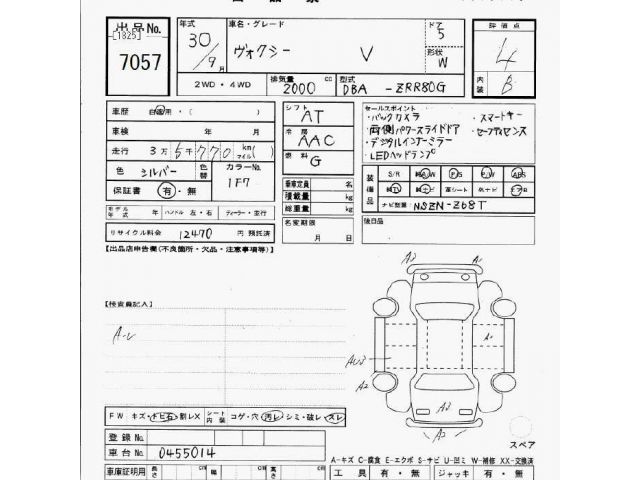 出品No.
[1825]
7057
年式
30/9月
車名・グレード
ヴォクシー V
ドア
5
形状
W
評価点
4
内装
B
2WD・4WD
排気量
2000 cc
型式
DBA -ZRR80G
車歴 自家用・( )
車検 年 月
走行 3万5千770 km マイル( )
色 シルバー
色替
カラーNo.
1F7
保証書 有・無
シフト
AT
冷房
AAC
燃料
G
乗車定員 名
積載量 kg
総重量 kg
名変期限
月 日
セールスポイント
・バックカメラ ・スマートキー
・両側パワースライドドア ・セーフティセンス
・デジタルインナーミラー
・LEDヘッドランプ
装備品
S/R 純A/W P/S P/W ABS
純TV 純ナビ 革シート 社ナビ エアB
ナビ型番 NSZN-Z68T
後日品
モデル年式 年 ハンドル 左・右 ディーラー・並行
リサイクル料金 12470 円 預託済
【出品店申告欄(不良箇所・欠品・注意事項等)】
【検査員記入】
A-レ
A2
A2
A1
AU3
A2
A2
FW キズ・トビ石・割レX シート内装 コゲ・穴 汚レ シミ・破レ・スレ
登録No.
車台No. 0455014
スペア
A-キズ C-腐食 E-エクボ S-サビ U-凹ミ W-補修 XX-交換済
車庫証明用 長さ cm 幅 cm 高さ cm
工具 有・無 ジャッキ 有・無